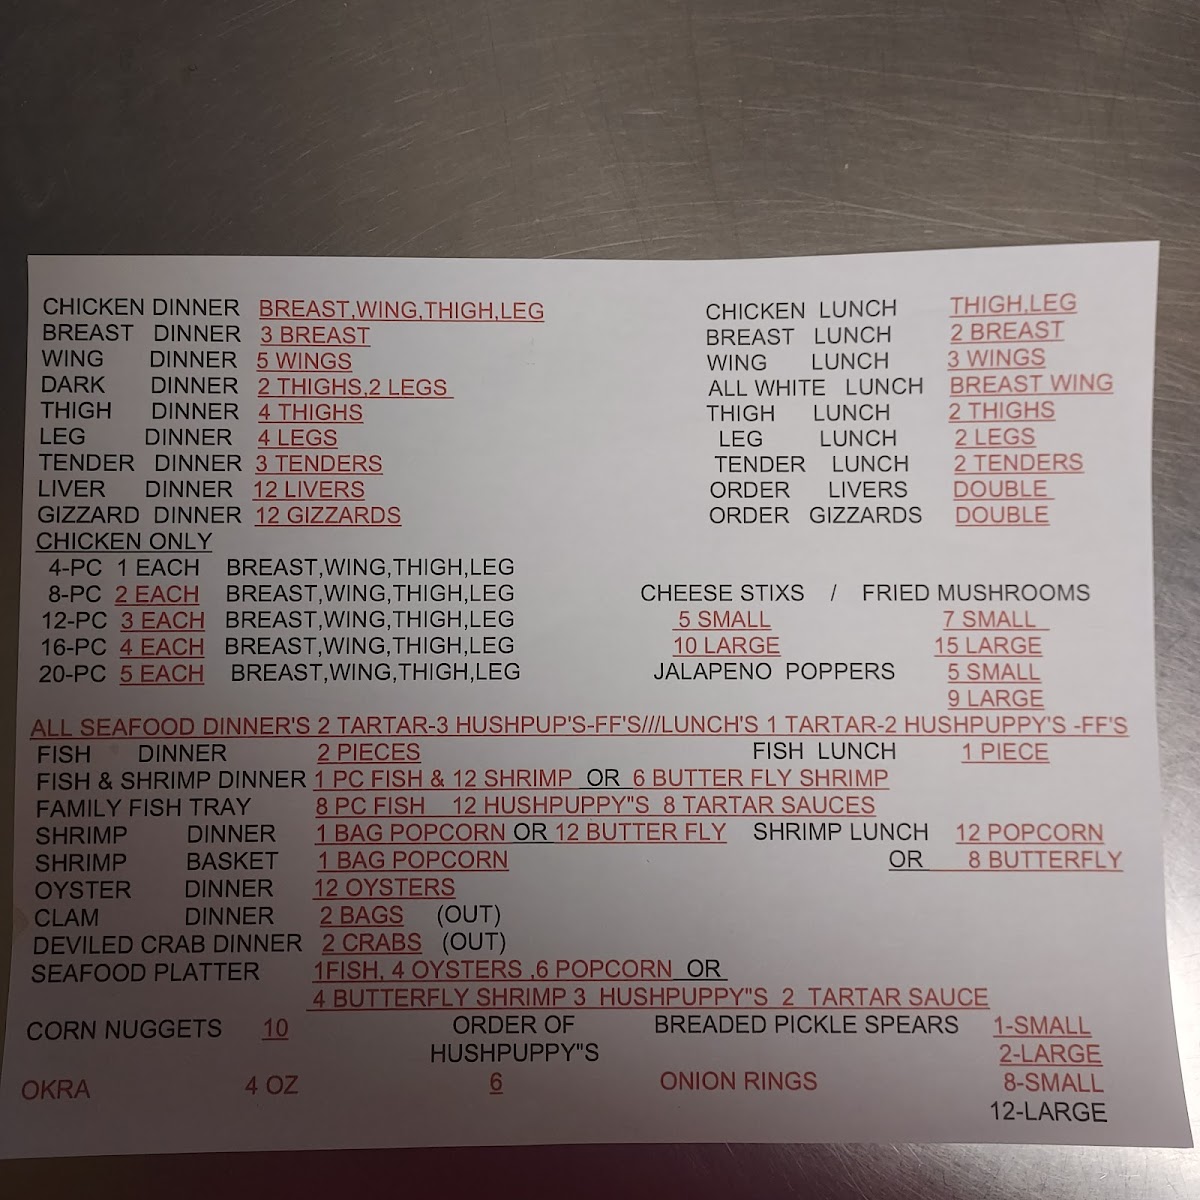 CHICKEN DINNER BREAST,WING,THIGH,LEG CHICKEN LUNCH THIGH,LEG
BREAST DINNER 3 BREAST BREAST LUNCH 2 BREAST
WING DINNER 5 WINGS WING LUNCH 3 WINGS
DARK DINNER 2 THIGHS,2 LEGS ALL WHITE LUNCH BREAST WING
THIGH DINNER 4 THIGHS THIGH LUNCH 2 THIGHS
LEG DINNER 4 LEGS LEG LUNCH 2 LEGS
TENDER DINNER 3 TENDERS TENDER LUNCH 2 TENDERS
LIVER DINNER 12 LIVERS ORDER LIVERS DOUBLE
GIZZARD DINNER 12 GIZZARDS ORDER GIZZARDS DOUBLE
CHICKEN ONLY
4-PC 1 EACH BREAST,WING,THIGH,LEG
8-PC 2 EACH BREAST,WING,THIGH,LEG CHEESE STIXS / FRIED MUSHROOMS
12-PC 3 EACH BREAST,WING,THIGH,LEG 5 SMALL 7 SMALL
16-PC 4 EACH BREAST,WING,THIGH,LEG 10 LARGE 15 LARGE
20-PC 5 EACH BREAST,WING,THIGH,LEG JALAPENO POPPERS 5 SMALL
9 LARGE
ALL SEAFOOD DINNER'S 2 TARTAR-3 HUSHPUP'S-FF'S///LUNCH'S 1 TARTAR-2 HUSHPUPPY'S -FF'S
FISH DINNER 2 PIECES FISH LUNCH 1 PIECE
FISH & SHRIMP DINNER 1 PC FISH & 12 SHRIMP OR 6 BUTTER FLY SHRIMP
FAMILY FISH TRAY 8 PC FISH 12 HUSHPUPPY"S 8 TARTAR SAUCES
SHRIMP DINNER 1 BAG POPCORN OR 12 BUTTER FLY SHRIMP LUNCH 12 POPCORN
SHRIMP BASKET 1 BAG POPCORN OR 8 BUTTERFLY
OYSTER DINNER 12 OYSTERS
CLAM DINNER 2 BAGS (OUT)
DEVILED CRAB DINNER 2 CRABS (OUT)
SEAFOOD PLATTER 1FISH, 4 OYSTERS ,6 POPCORN OR
4 BUTTERFLY SHRIMP 3 HUSHPUPPY"S 2 TARTAR SAUCE
CORN NUGGETS 10 ORDER OF BREADED PICKLE SPEARS 1-SMALL
HUSHPUPPY"S 2-LARGE
OKRA 4 OZ 6 ONION RINGS 8-SMALL
12-LARGE